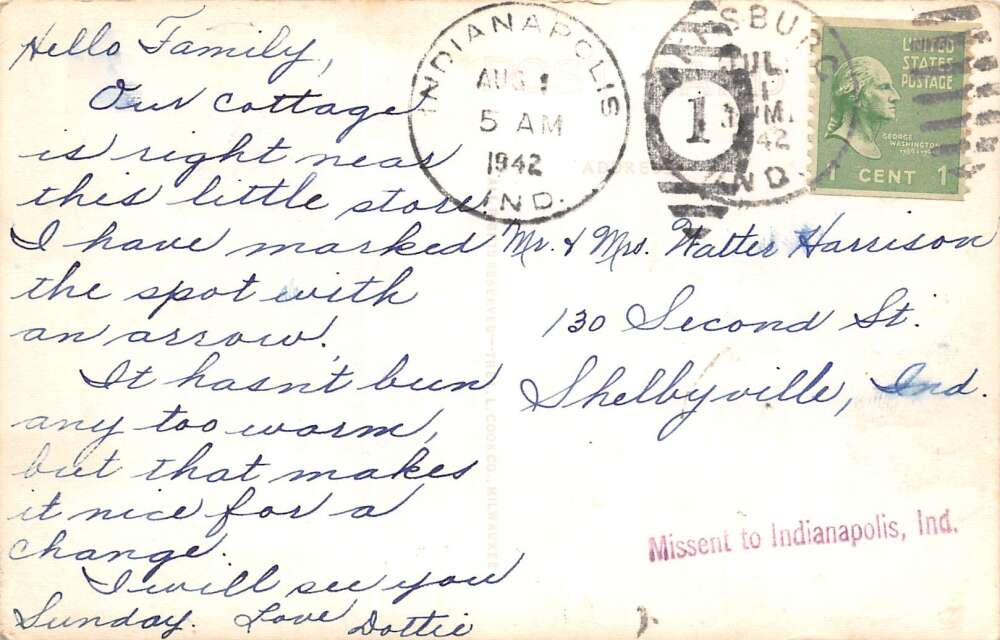 Hello Family,
Our cottage
is right near
this little store.
I have marked
the spot with
an arrow.
It hasn't been
any too warm,
but that makes
it nice for a
change.
I will see you
Sunday. Love Dottie
INDIANAPOLIS
AUG 1
5 AM
1942
IND.
1
SBURG
JUL
1942
IND.
UNITED
STATES
POSTAGE
GEORGE
WASHINGTON
1 CENT 1
ADDRESS
Mr. & Mrs. Walter Harrison
130 Second St.
Shelbyville, Ind.
Missent to Indianapolis, Ind.
L. L. COOK CO., MILWAUKEE